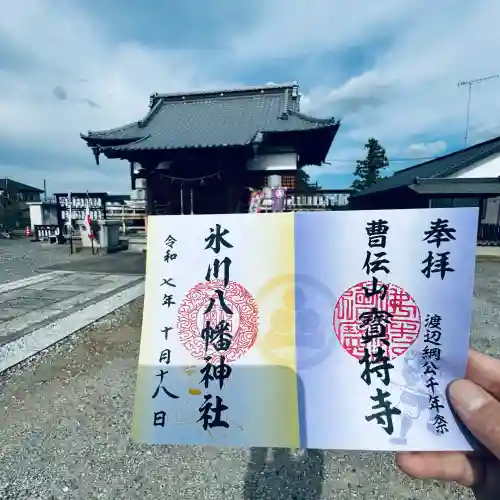 奉拝
渡辺綱公千年祭
曹伝山寳持寺
氷川八幡神社
令和七年十月十八日